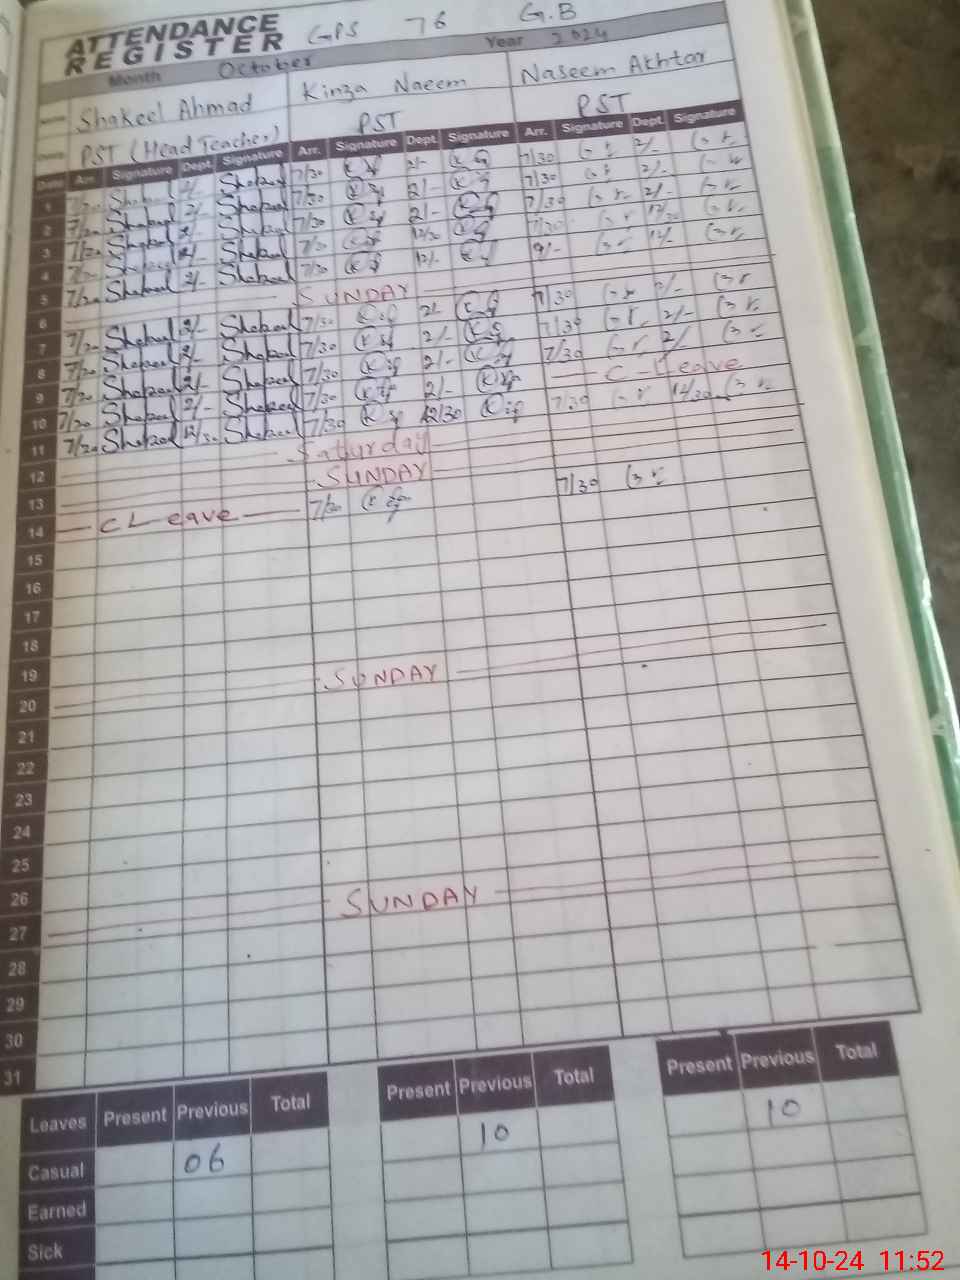 ATTENDANCE REGISTER GPS 76 G.B
Month October Year 2024
Name Shakeel Ahmad Kinza Naeem Naseem Akhtar
PST (Head Teacher) PST PST
Date Arr. Signature Dept. Signature Arr. Signature Dept. Signature Arr. Signature Dept. Signature
1 7/20 Shakeel 2/- Shakeel 7/30 2/- 7/30 2/-
2 7/20 Shakeel 2/- Shakeel 7/30 2/- 7/30 2/-
3 7/20 Shakeel 2/- Shakeel 7/30 2/- 7/30 2/-
4 7/20 Shakeel Shakeel 7/30 12/30 7/30 12/30
5 7/20 Shakeel 2/- Shakeel 7/30 12/- 9/- 12/-
6 SUNDAY
7 7/20 Shakeel 2/- Shakeel 7/30 2/- 7/30 2/-
8 7/20 Shakeel 2/- Shakeel 7/30 2/- 7/30 2/-
9 7/20 Shakeel 2/- Shakeel 7/30 2/- 7/30 2/-
10 7/20 Shakeel 2/- Shakeel 7/30 2/- C-Leave
11 7/20 Shakeel 12/30 Shakeel 7/30 12/30 7/30 12/30
12 Saturday
13 SUNDAY
14 C Leave 7/30 7/30
15
16
17
18
19
20 SUNDAY
21
22
23
24
25
26
27 SUNDAY
28
29
30
31
Leaves Present Previous Total Present Previous Total Present Previous Total
Casual 06 10 10
Earned
Sick
14-10-24 11:52